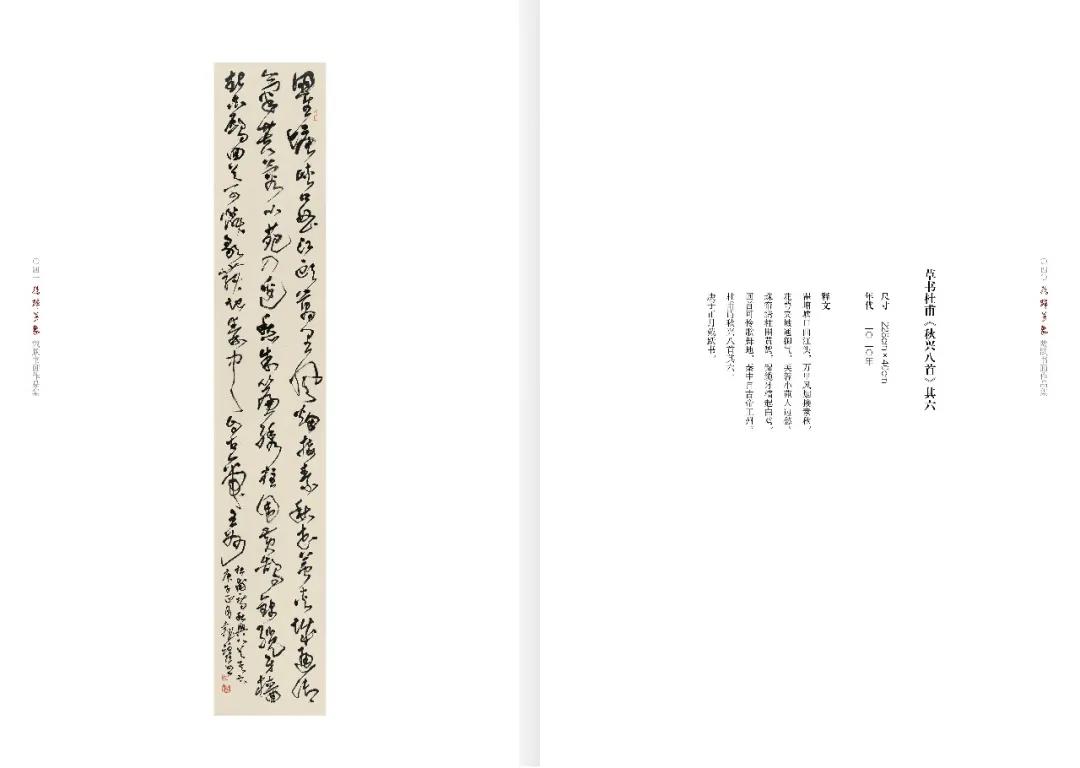 草书杜甫《秋兴八首》其六
尺寸
年代 二〇二〇年
释文
瞿塘峡口曲江头，万里风烟接素秋。
花萼夹城通御气，芙蓉小苑入边愁。
珠帘绣柱围黄鹄，锦缆牙樯起白鸥。
回首可怜歌舞地，秦中自古帝王州。
杜甫诗秋兴八首其六。
庚子正月戴跃书。
瞿塘峡口曲江头万里风烟接素秋花萼夹城通御
气芙蓉小苑入边愁朱帘绣柱围黄鹄锦缆牙樯
起白鸥回首可怜歌舞地秦中自古帝王州
杜甫诗秋兴八首其六
庚子正月
〇四一
书画作品集